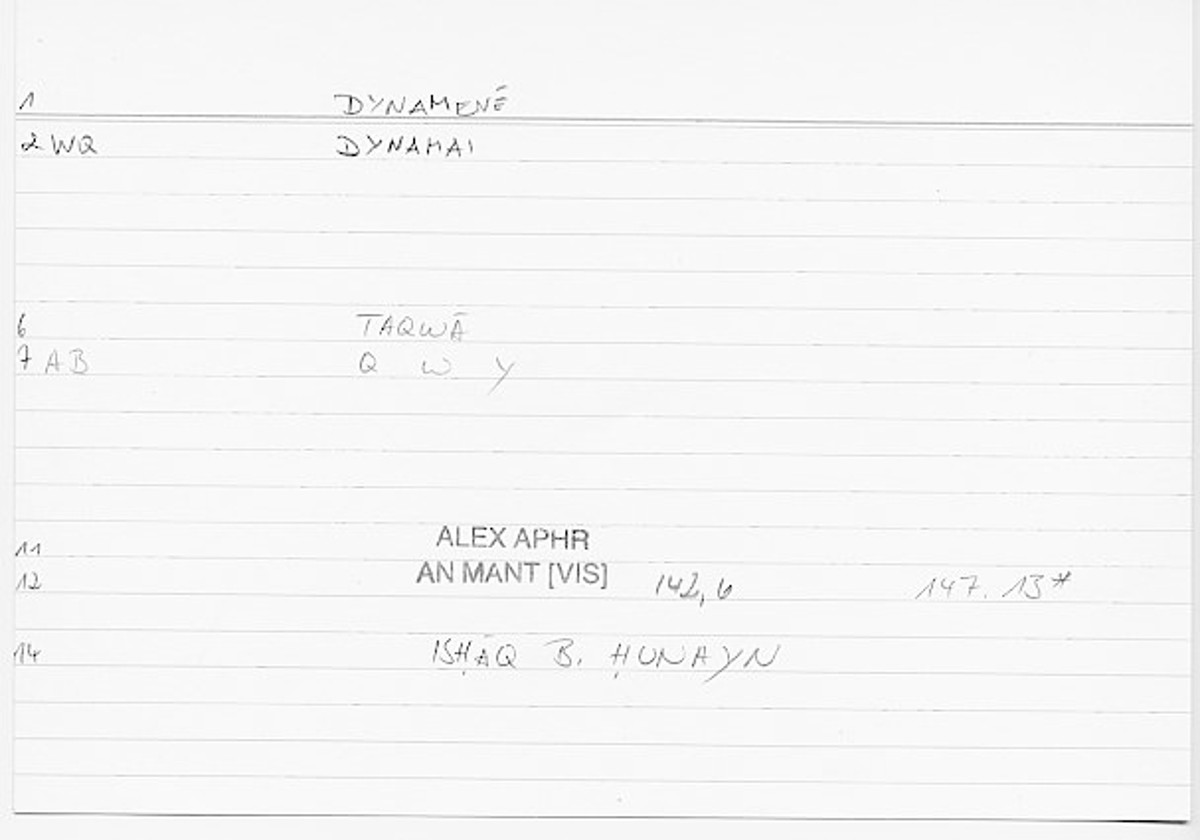 1 DYNAMENĒ
2 WQ DYNAMAI
6 TAQWĀ
7 AB Q W Y
11 ALEX APHR
12 AN MANT [VIS] 142,6 147.13*
14 ISḤĀQ B. ḤUNAYN